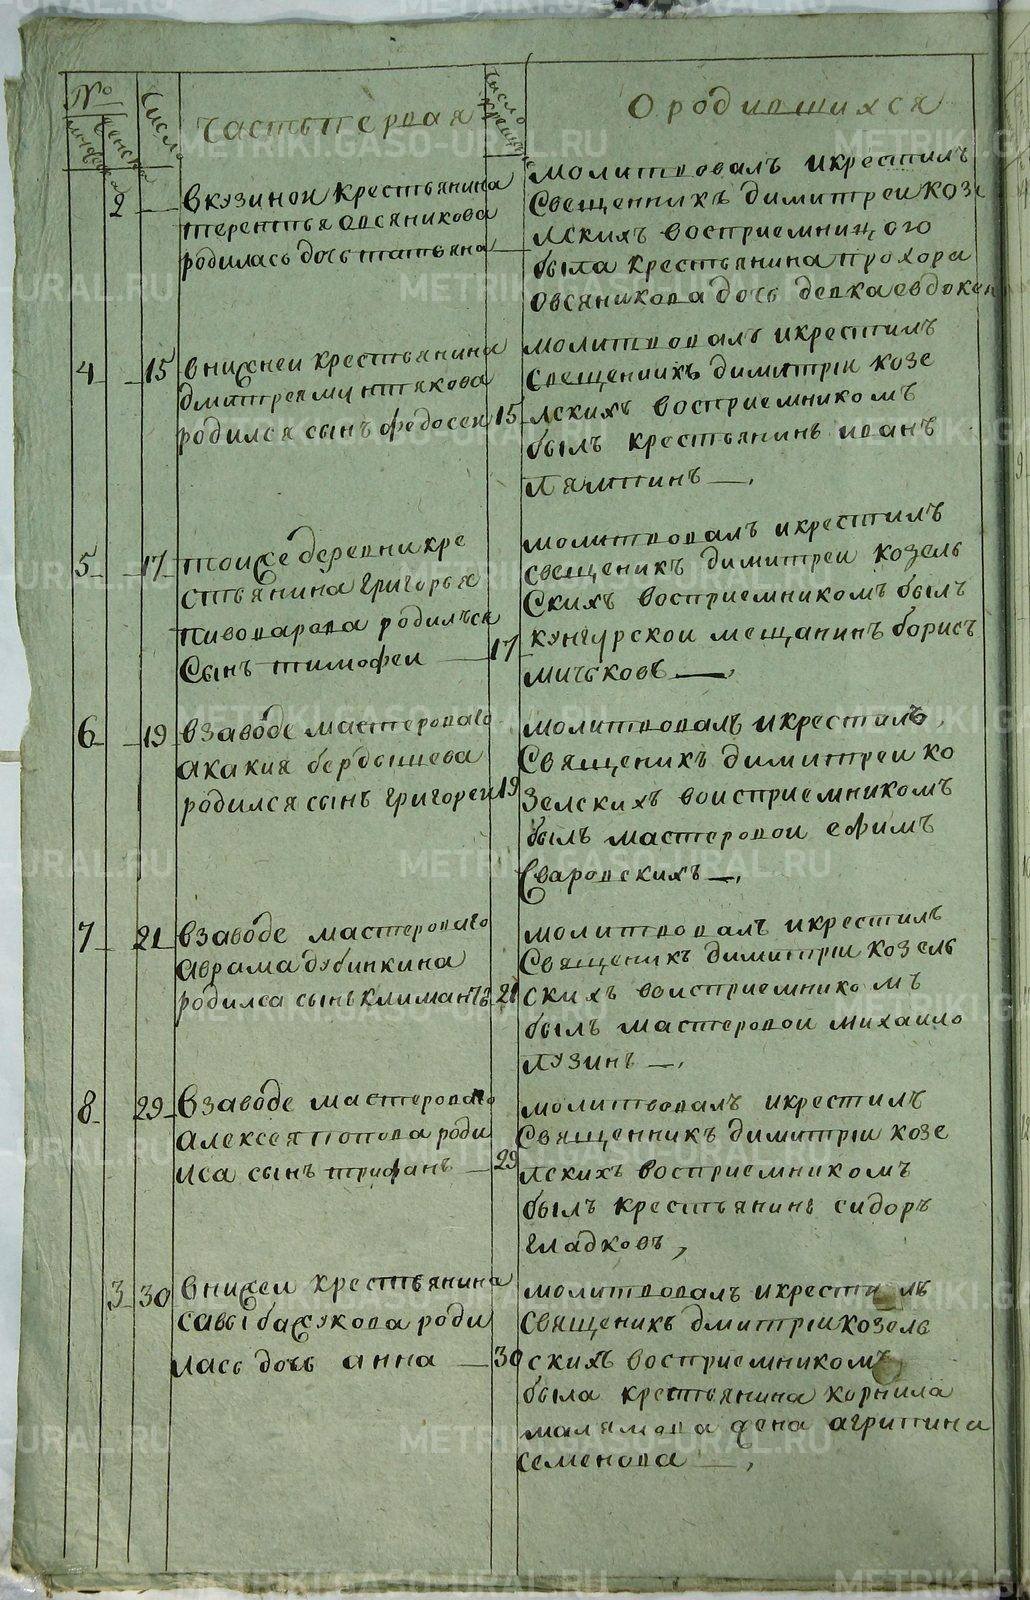 №
мужеска
женска
число
Часть первая
число крещения
О родившихся
2
вкузинои крестьянина
терентья овсяникова
родилась дочь татьяна
молитвовалъ икрестилъ
Свещенникъ димитреи козе
лскихъ восприемницого
была крестьянина прохора
овсяникова дочь девка евдокея
4 15
внижнеи крестьянина
дмитрея
родился сынъ федосеи 15
молитвовалъ икрестилъ
свещенникъ димитрiи козе
лскихъ восприемникомъ
былъ крестьянинъ иванъ
Лямпинъ
5 17
тоиже деревни кре
стьянина григорья
пивоварова родилъся
Сынъ тимофеи 17
молитвовалъ икрестилъ
свещеникъ димитреи козель
Скихъ восприемникомъ былъ
кунгурскои мещанинъ борисъ
мичковъ
6 19
взаводе мастероваго
акакия бердышева
родился сынъ григореи 19
молитвовалъ икрестилъ
Священикъ димитреи ко
зелскихъ воисприемникомъ
былъ мастеровои ефимъ
Сваровскихъ
7 21
взаводе мастероваго
аврама дубинкина
родилса сынъ климантъ 21
молитвовалъ икрестилъ
Священикъ димитрiи козель
скихъ воисприемникомъ
былъ мастеровои михаило
лузинъ
8 29
взаводе мастероваго
алексея попова роди
лса сынъ трифанъ 29
молитвовалъ икрестилъ
Священникъ димитрiи козе
лскихъ восприемникомъ
былъ крестьянинъ сидоръ
гладковъ,
3 30
внижеи крестьянина
савы бажукова роди
лась дочь анна 30
молитвовалъ икрестилъ
Священикъ дмитрiи козель
скихъ восприемникомъ
была крестьянина корнила
малямова жена агрипина
семенова
METRIKI.GASO-URAL.RU